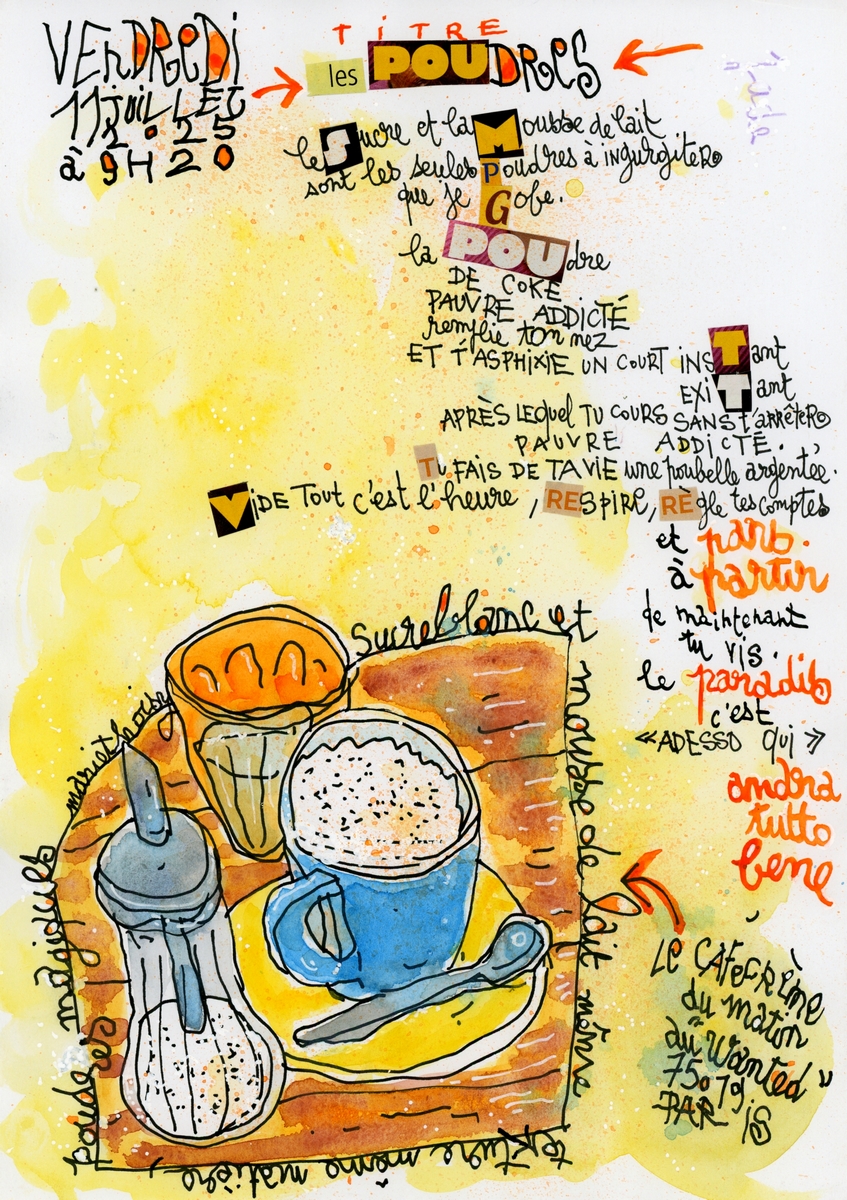 VENDREDI
11 JUILLET
2025
à 9H20
TITRE
les POUDRES
le Sucre et la Mousse de lait
sont les seules Poudres à inguRgiteR
que je Gobe.
la POUdre
DE COKE
PAUVRE ADDICTÉ
remflie ton nez
ET T'ASPHIXIE UN COURT INSTant
EXiTant
APRÈS LEQuel TU COURS SANS t'aRRêteR
PAUVRE ADDICTÉ.
Tu FAIS DE TA VIE une poubelle argentée.
ViDE Tout c'est l'heure, REspire, RÈgle tes comptes
et pars.
à partir
de maintenant
tu vis.
le paradis
c'est
«ADESSO qui»
andra
tutto
bene
Sucre blanc et
mousse de lait même
texture même matière
poudres magiques
LE CAFeCRème
du matin
au "Wanted"
75019
PARiS